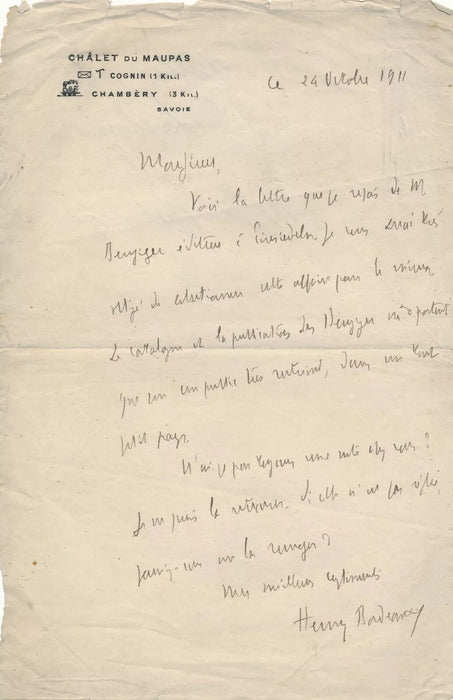 CHÂLET DU MAUPAS
COGNIN (1 KIL.)
CHAMBÉRY (3 KIL.)
SAVOIE
Ce 24 Octobre 1911
Monsieur,
Voici la lettre que je reçois de M
Benziger éditeur à Einsiedeln. Je vous serai très
obligé de cette affaire pour le mieux.
Le catalogue et la publication des Benziger
que sur un public très restreint, dans un tout
petit pays.
N'ai-je pas toujours une note chez vous ?
Je ne puis la retrouver. Si elle n'est pas réglée,
voulez-vous me la renvoyer ?
Mes meilleurs sentiments
Henry Bordeaux